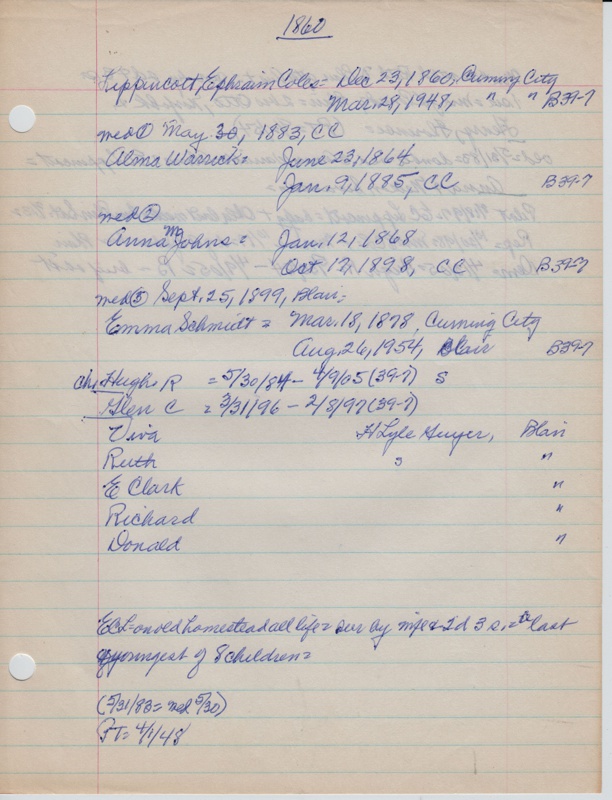 1860
Lippincott, Ephraim Coles = Dec 23, 1860, Cuming City
Mar. 28, 1948, " " B39-7
med ① May 30, 1883, CC
Alma Warrick = June 23, 1864
Jan. 9, 1885, CC B39-7
med ②
Anna M Johns = Jan. 12, 1868
Oct 17, 1898, CC B39-7
med ③ Sept. 25, 1899, Blair,
Emma Schmidt = Mar. 18, 1878, Cuming City
Aug. 26, 1954, Blair B39-7
ch: Hugh R = 5/30/84 - 4/9/05 (39-7) S
Glen C = 3/31/96 - 2/8/97 (39-7)
Viva H Lyle Guyer, Blair
Ruth s "
E Clark "
Richard "
Donald "
ECL = on old homestead all life = sur by wife & 2d 3 s. = last
youngest of 8 children =
(5/31/83 = med 5/30)
PT = 4/1/48